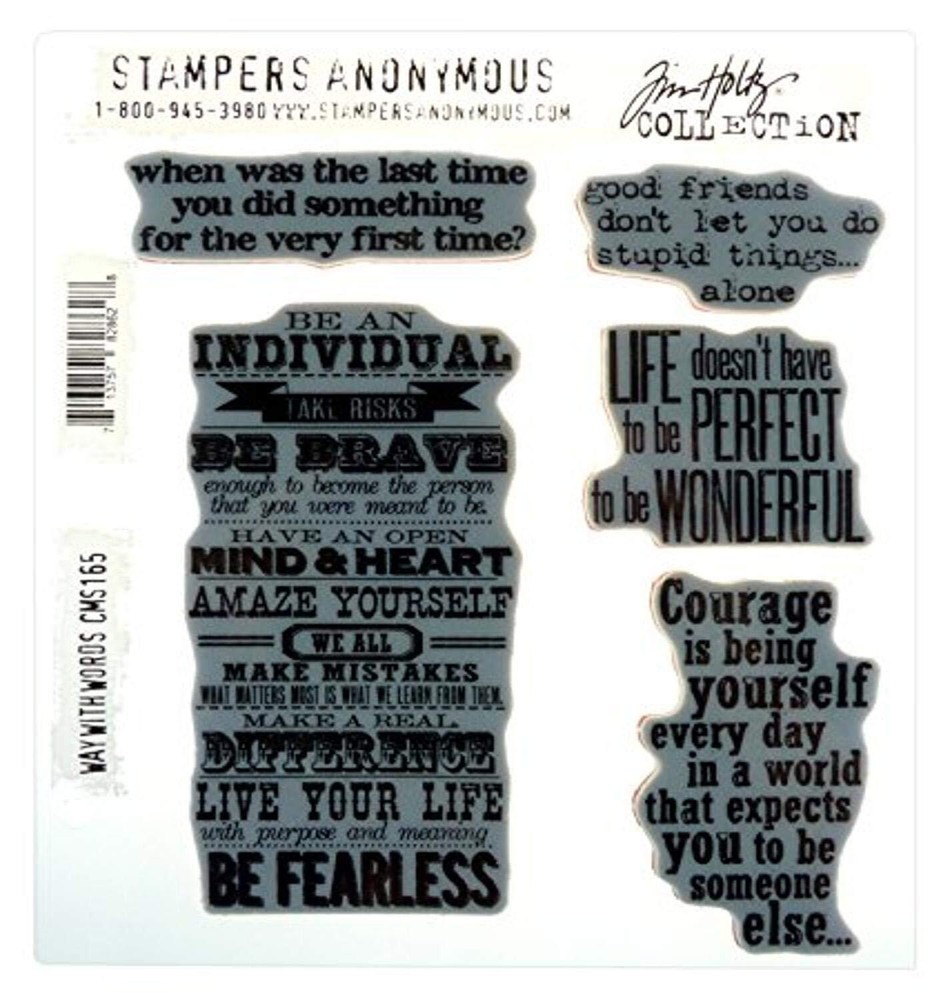 STAMPERS ANONYMOUS
1-800-945-3980 WWW.STAMPERSANONYMOUS.COM
Tim Holtz®
COLLECTiON
when was the last time
you did something
for the very first time?
good friends
don't let you do
stupid things...
alone
BE AN
INDIVIDUAL
TAKE RISKS
BE BRAVE
enough to become the person
that you were meant to be.
HAVE AN OPEN
MIND & HEART
AMAZE YOURSELF
WE ALL
MAKE MISTAKES
WHAT MATTERS MOST IS WHAT WE LEARN FROM THEM.
MAKE A REAL
DIFFERENCE
LIVE YOUR LIFE
with purpose and meaning
BE FEARLESS
LIFE doesn't have
to be PERFECT
to be WONDERFUL
Courage
is being
yourself
every day
in a world
that expects
you to be
someone
else...
WAY WITH WORDS CMS165